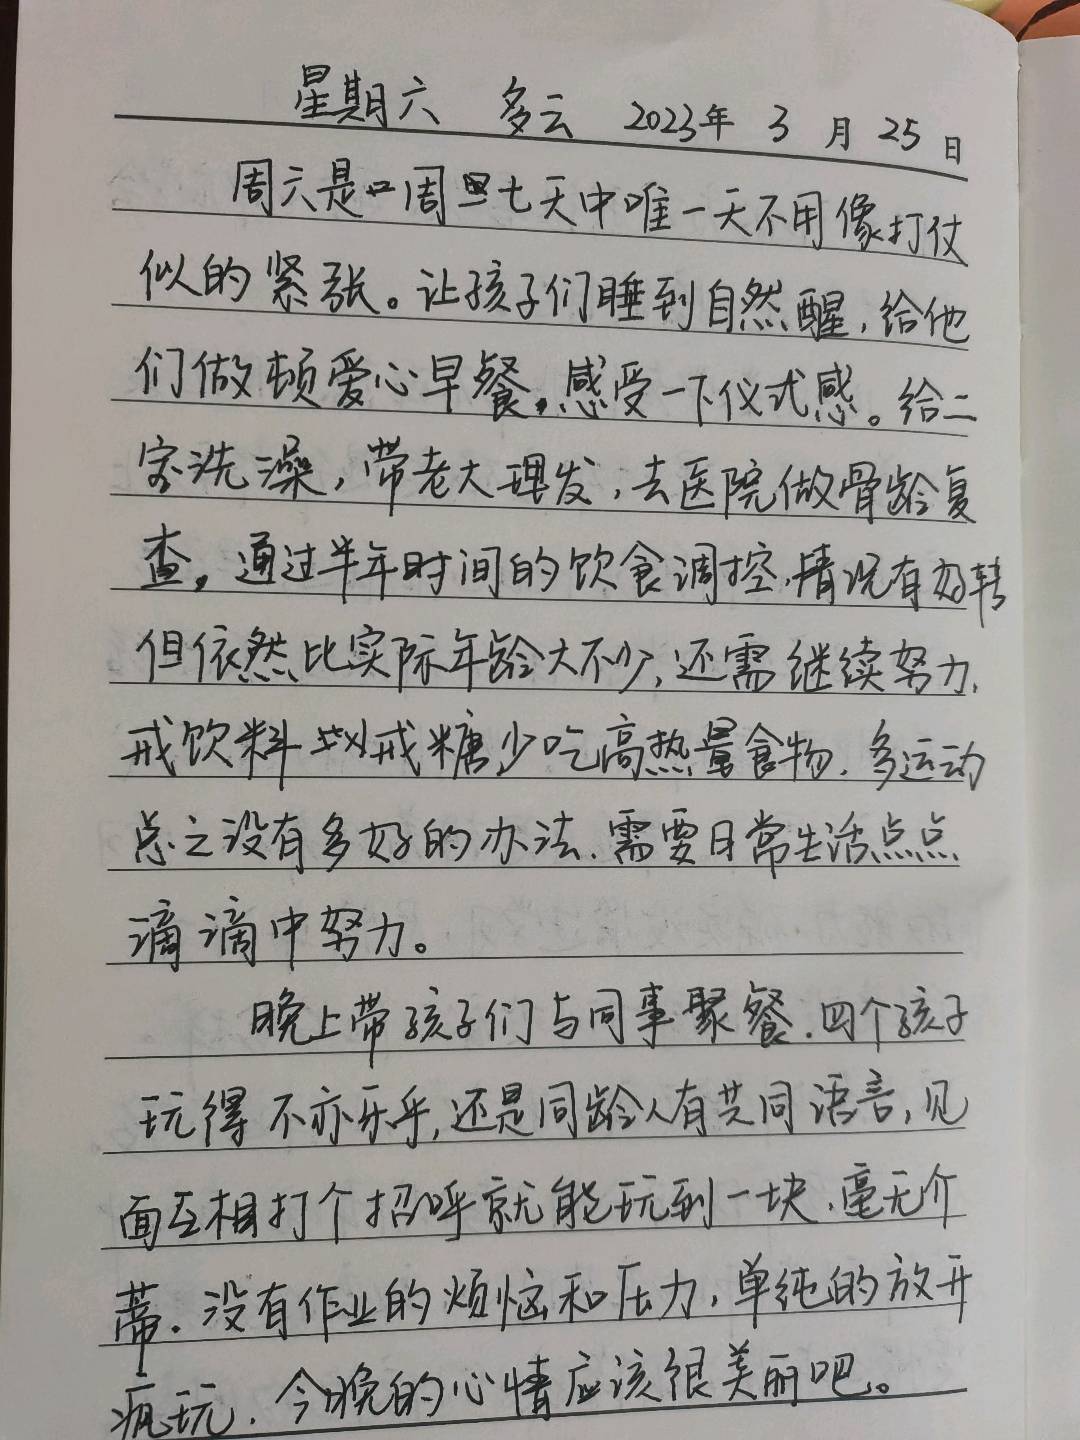 星期六 多云 2023年 3 月 25 日
周六是一周七天中唯一天不用像打仗
似的紧张。让孩子们睡到自然醒，给他
们做顿爱心早餐。感受一下仪式感。给二
宝洗澡，带老大理发，去医院做骨龄复
查。通过半年时间的饮食调控，情况有好转
但依然比实际年龄大不少，还需继续努力，
戒饮料 戒糖少吃高热量食物，多运动
总之没有多好的办法，需要日常生活点点
滴滴中努力。
晚上带孩子们与同事聚餐，四个孩子
玩得不亦乐乎，还是同龄人有共同语言，见
面互相打个招呼就能玩到一块，毫无介
蒂。没有作业的烦恼和压力，单纯的放开
疯玩，今晚的心情应该很美丽吧。